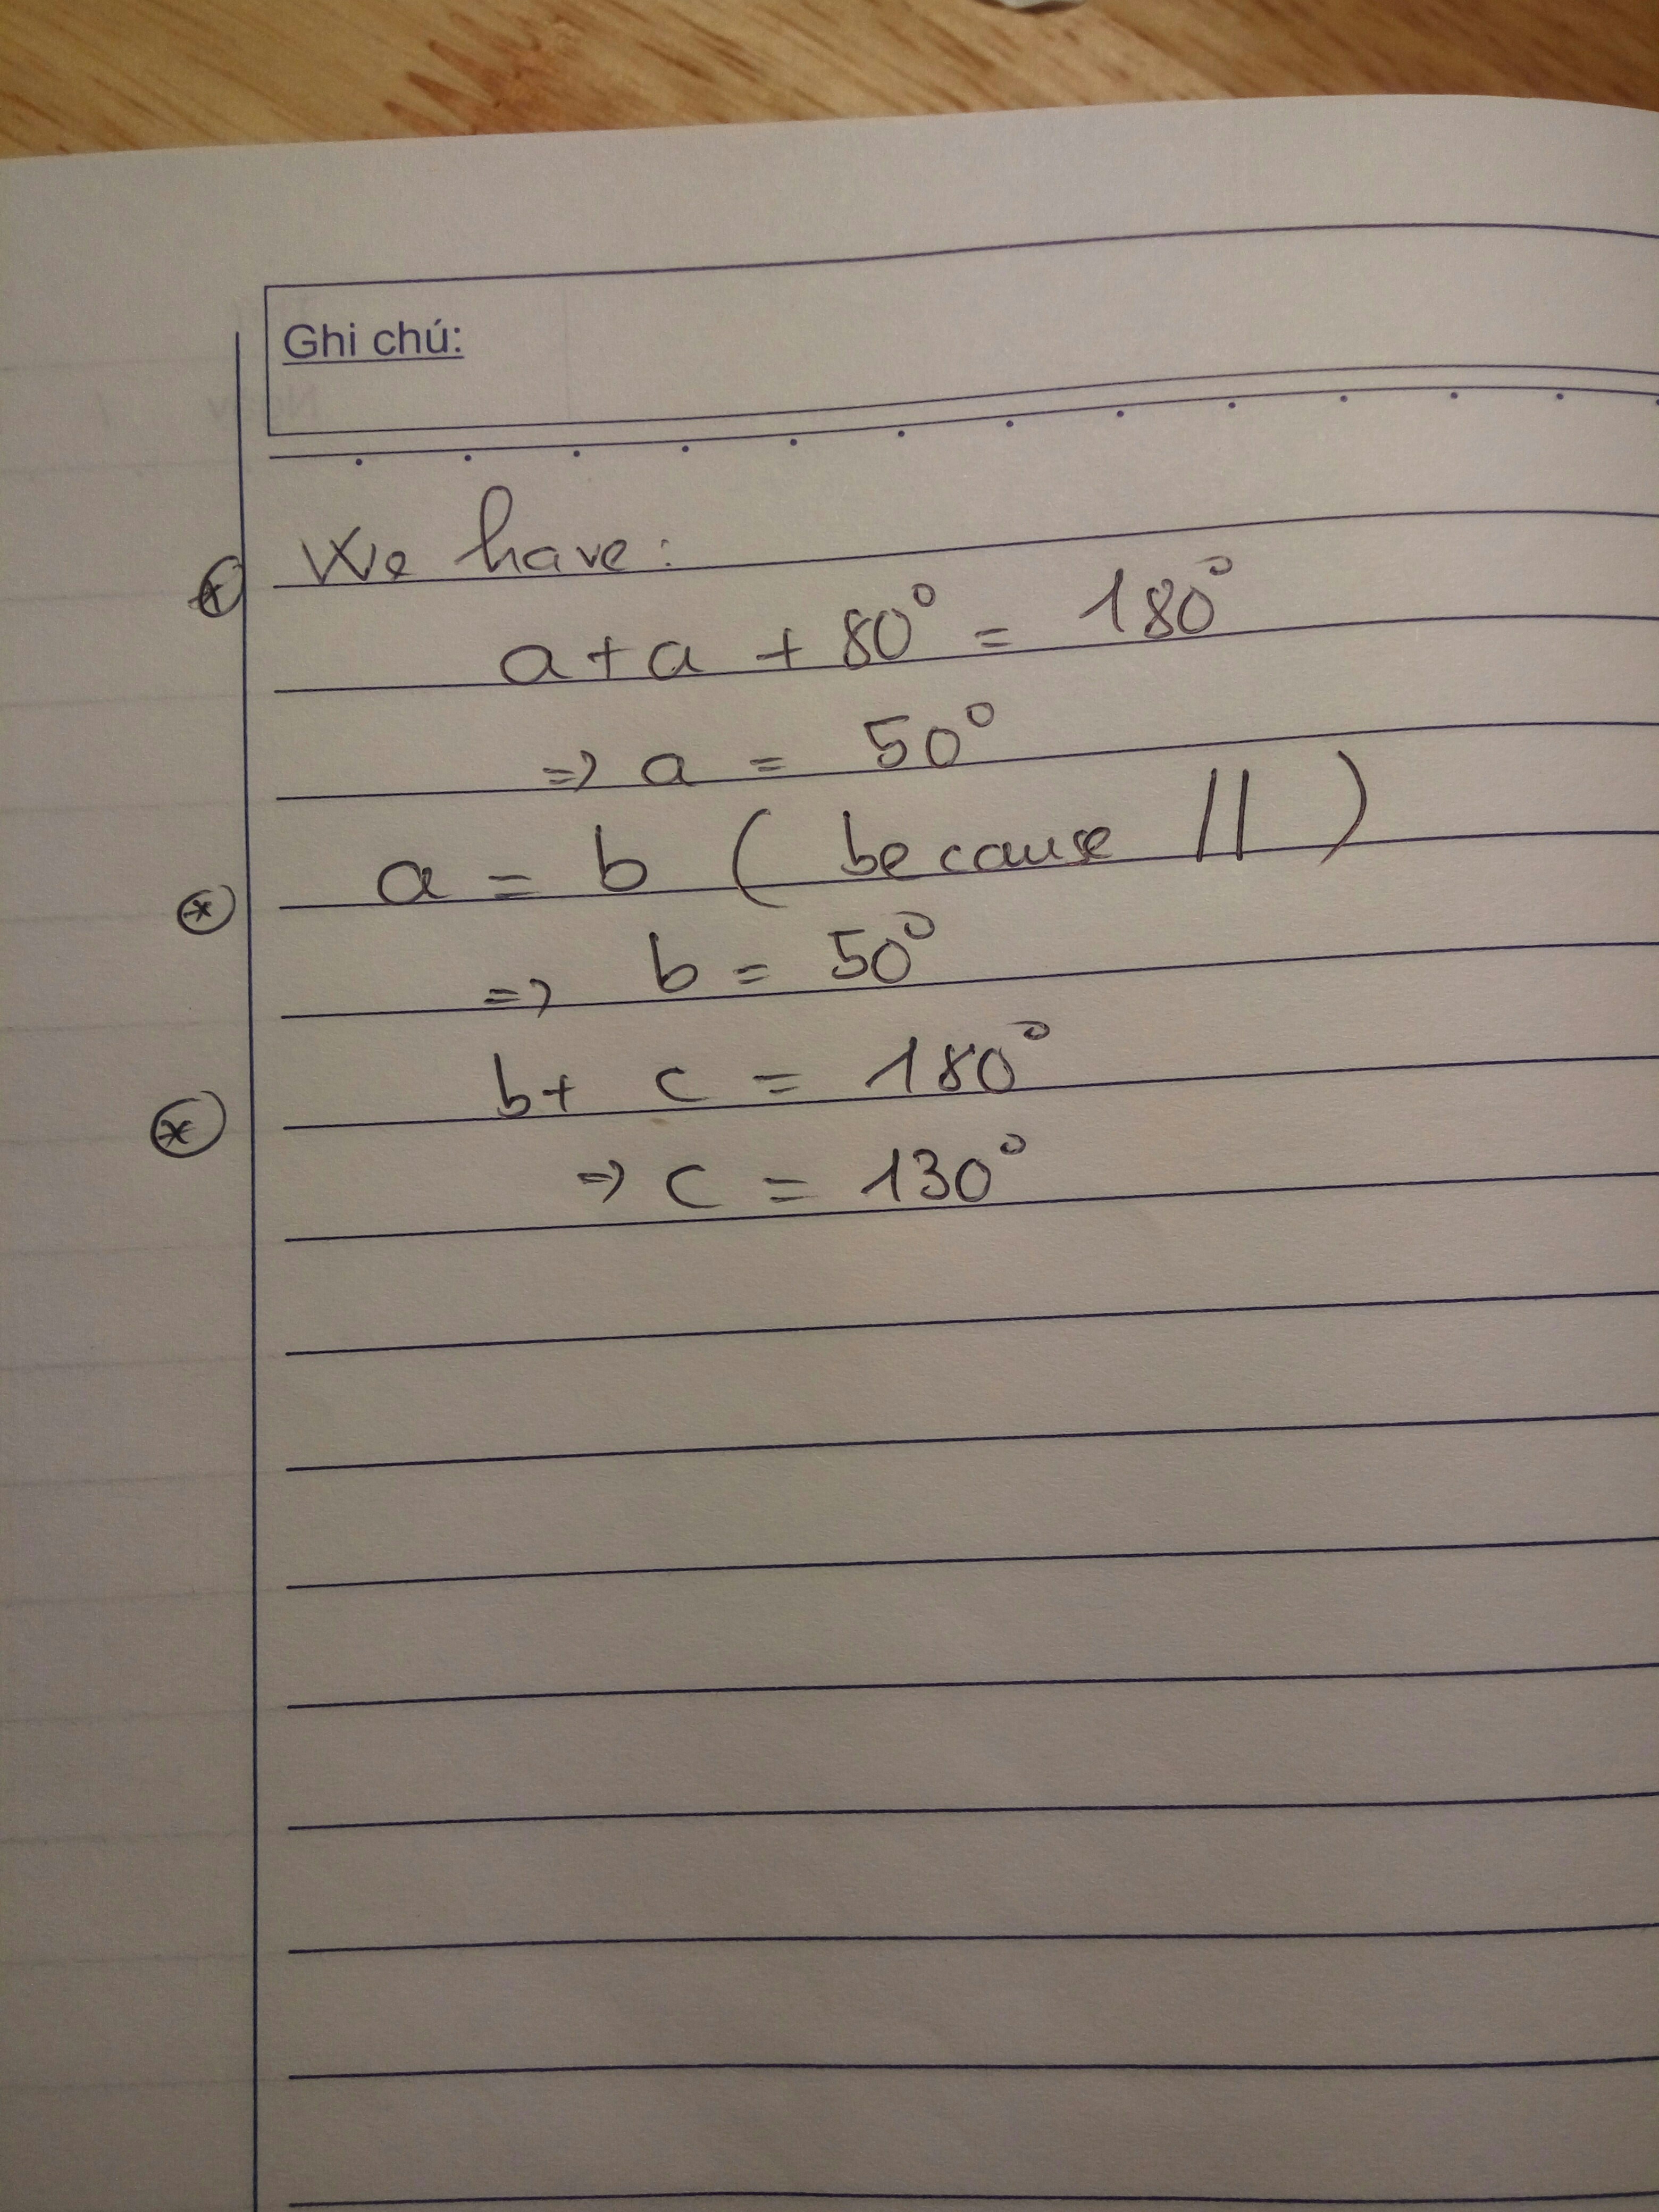 Ghi chú:
We have:
a + a + 80° = 180°
=> a = 50°
* a = b ( because // )
=> b = 50°
* b + c = 180°
=> c = 130°